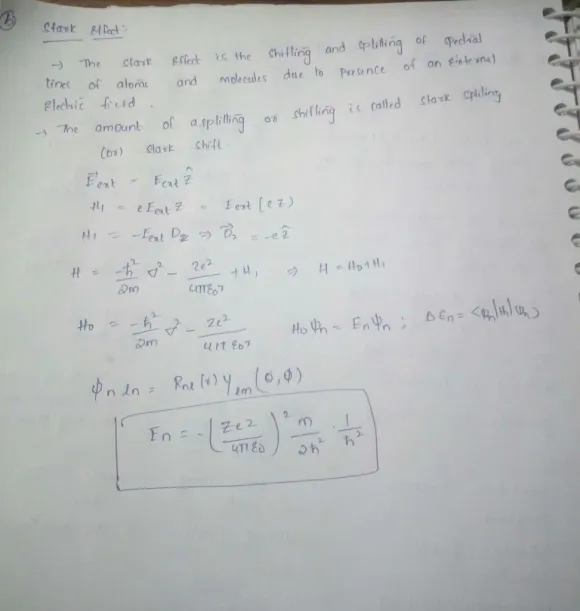 b)
Stark Effect:
→ The Stark Effect is the Shifting and Splitting of Spectral
lines of atoms and molecules due to Presence of an External
Electric field.
→ The amount of a splitting or shifting is called Stark Spliting
(or) Stark Shift
E⃗ext = Eext ẑ
H₁ = e Eext z = Eext (ez)
H₁ = -Eext Dz ⇒ D⃗ = -eẑ
H = -ħ²/2m ∇² - Ze²/4πε₀r + H₁ ⇒ H = H₀ + H₁
H₀ = -ħ²/2m ∇² - Ze²/4πε₀r H₀ψn = Enψn ; ΔEn = <ψn|H₁|ψn>
ψn ln = Rnl (r) Ylm (θ, φ)
En = -(Ze2/4πε0)² m/2ħ² · 1/ħ²